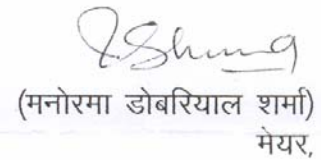 (मनोरमा डोबरियाल शर्मा)
मेयर,